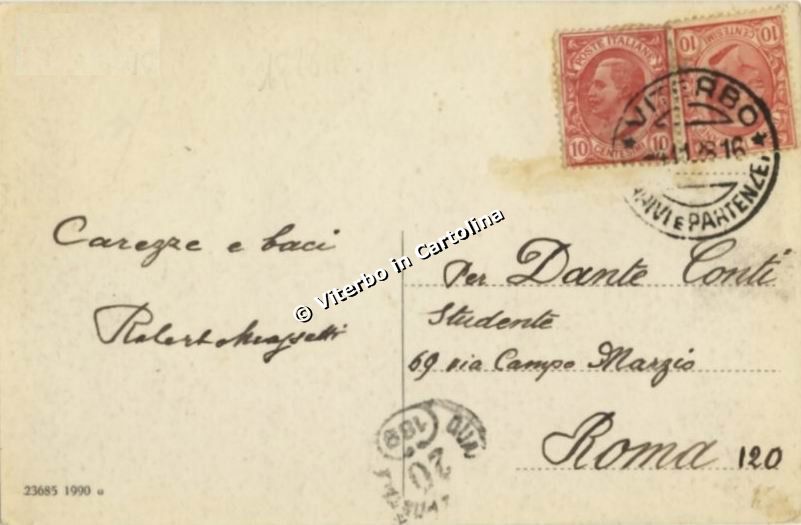 POSTE ITALIANE
10 CENTESIMI 10
10 CENTESIMI 10
VITERBO
ARRIVI E PARTENZE
Carezze e baci
© Viterbo in Cartolina
Per Dante Conti
Studente
69 via Campo Marzio
Roma 120
189
20
23685 1990 o